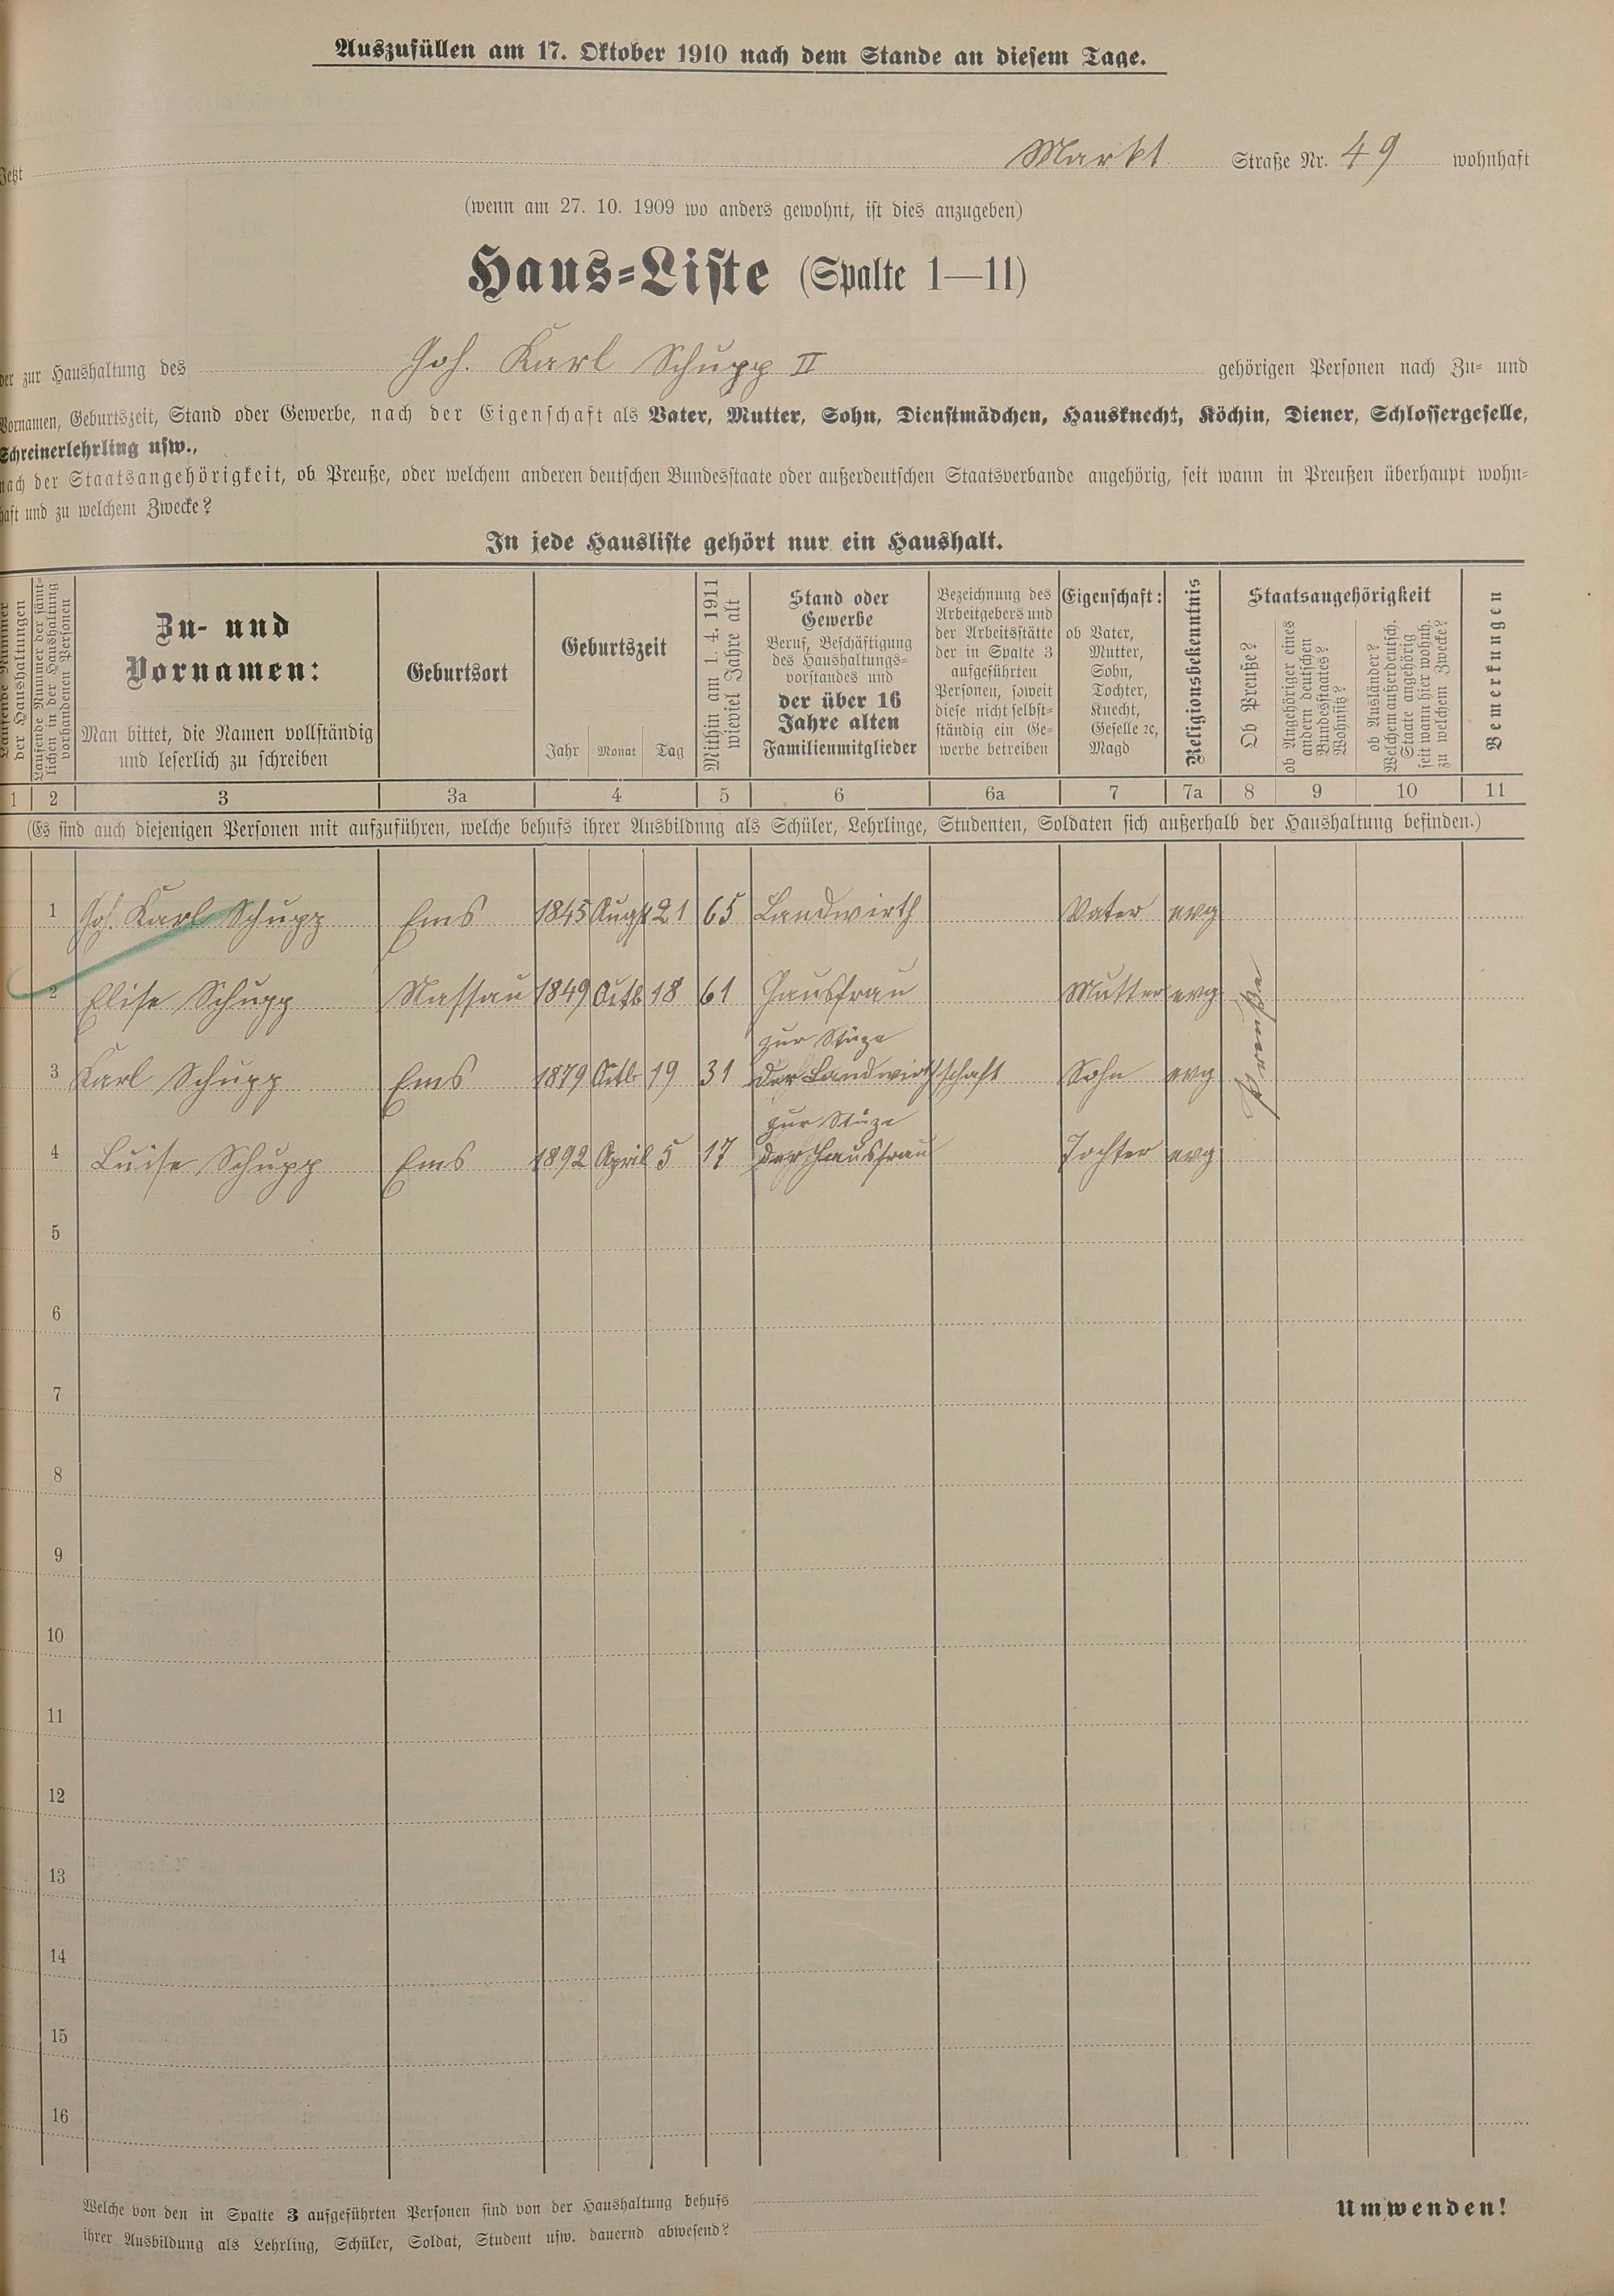 Auszufüllen am 17. Oktober 1910 nach dem Stande an diesem Tage.
Jetzt Markt Straße Nr. 49 wohnhaft
(wenn am 27. 10. 1909 wo anders gewohnt, ist dies anzugeben)
Haus-Liste (Spalte 1—11)
der zur Haushaltung des Joh. Karl Schupp II gehörigen Personen nach Zu- und
Vornamen, Geburtszeit, Stand oder Gewerbe, nach der Eigenschaft als Vater, Mutter, Sohn, Dienstmädchen, Hausknecht, Köchin, Diener, Schlossergeselle,
Schreinerlehrling usw.,
nach der Staatsangehörigkeit, ob Preuße, oder welchem anderen deutschen Bundesstaate oder außerdeutschen Staatsverbande angehörig, seit wann in Preußen überhaupt wohn-
haft und zu welchem Zwecke?
In jede Hausliste gehört nur ein Haushalt.
Laufende Nummer
der Haushaltungen
Laufende Nummer der sämt-
lichen in der Haushaltung
vorhandenen Personen
Zu- und
Vornamen:
Man bittet, die Namen vollständig
und leserlich zu schreiben
Geburtsort
Geburtszeit
Jahr Monat Tag
Mithin am 1. 4. 1911
wieviel Jahre alt
Stand oder
Gewerbe
Beruf, Beschäftigung
des Haushaltungs-
vorstandes und
der über 16
Jahre alten
Familienmitglieder
Bezeichnung des
Arbeitgebers und
der Arbeitsstätte
der in Spalte 3
aufgeführten
Personen, soweit
diese nicht selbst-
ständig ein Ge-
werbe betreiben
Eigenschaft:
ob Vater,
Mutter,
Sohn,
Tochter,
Knecht,
Geselle ꝛc,
Magd
Religionsbekenntnis
Staatsangehörigkeit
Ob Preuße?
ob Angehöriger eines
andern deutschen
Bundesstaates?
Wohnsitz?
ob Ausländer?
Welchem außerdeutsch.
Staate angehörig
seit wann hier wohnh.
zu welchem Zwecke?
Bemerkungen
1 2 3 3a 4 5 6 6a 7 7a 8 9 10 11
(Es sind auch diejenigen Personen mit aufzuführen, welche behufs ihrer Ausbildung als Schüler, Lehrlinge, Studenten, Soldaten sich außerhalb der Haushaltung befinden.)
1 Joh. Karl Schupp Ems 1845 Augst 21 65 Landwirth Vater evg
2 Elise Schupp Nassau 1849 Octb 18 61 Hausfrau Mutter evg
zur Stüze
3 Karl Schupp Ems 1879 Octb 19 31 der Landwirthschaft Sohn evg
zur Stüze
4 Luise Schupp Ems 1892 April 5 17 der Hausfrau Tochter evg
Preuße
5
6
7
8
9
10
11
12
13
14
15
16
Welche von den in Spalte 3 aufgeführten Personen sind von der Haushaltung behufs
ihrer Ausbildung als Lehrling, Schüler, Soldat, Student usw. dauernd abwesend?
Umwenden!